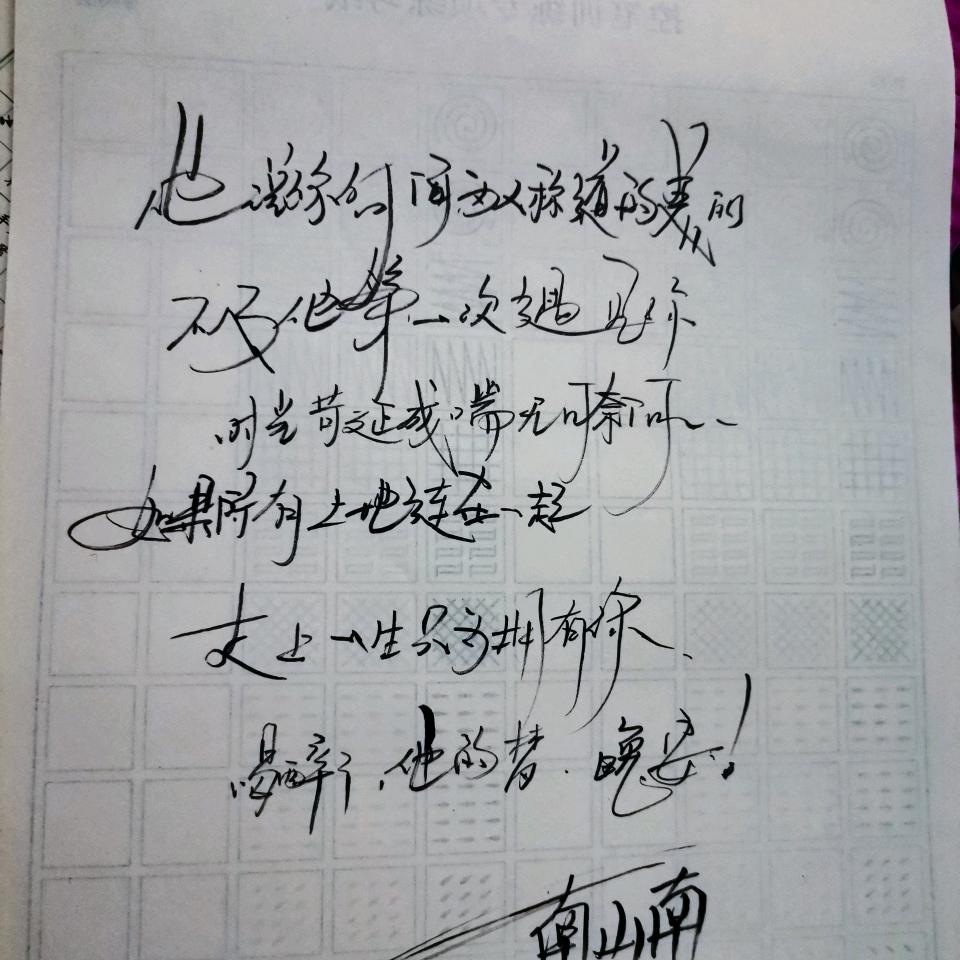 他说你任何为人称道的美丽
不及他第一次遇见你
时光苟延残喘无可奈何、
如果所有土地连在一起
走上一生只为拥有你、
喝醉了，他的梦．晚安！
南山南